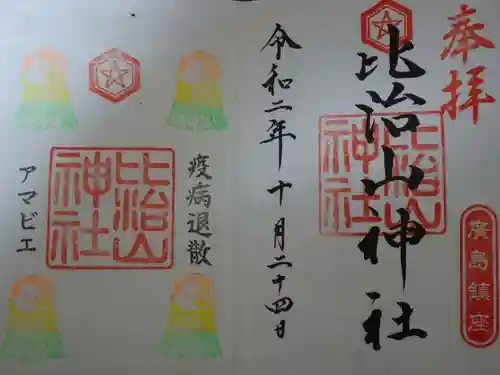 奉拝
比治山神社
比治山神社
廣島鎮座
令和二年十月二十四日
疫病退散
比治山神社
アマビエ